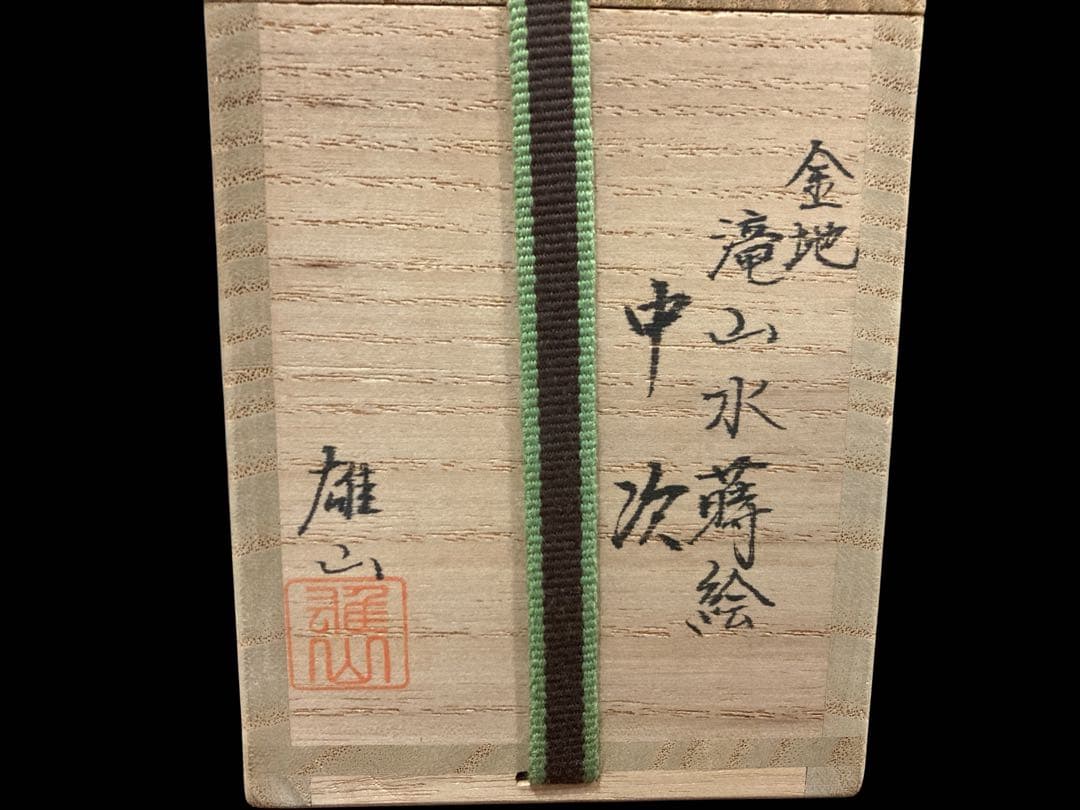 金地
滝山水蒔絵
中次
雄山
雄山